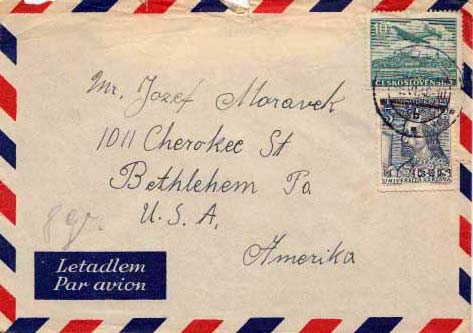 10
ČESKOSLOVENSKO
Mr. Jozef Moravek
1011 Cherokee St
Bethlehem Pa
U.S.A.
Amerika
8 gr.
UNIVERSITA KARLOVA
Letadlem
Par avion